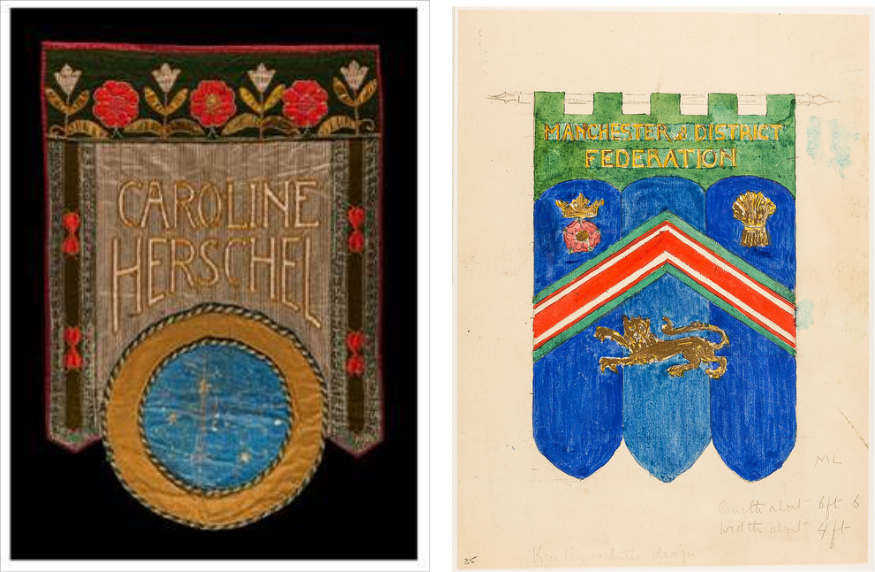 CAROLINE
HERSCHEL
MANCHESTER & DISTRICT
FEDERATION
ML
Length about 6ft 6
width about 4ft
design